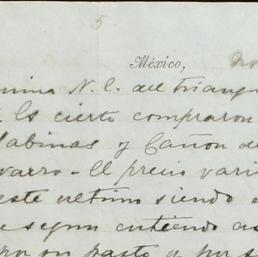 5
México,
N. E. del triangu
Es cierto compraron
Sabinas y Cañon de
varro - El precio vari
este ultimo siendo
segun entiendo
por su pasto y por s